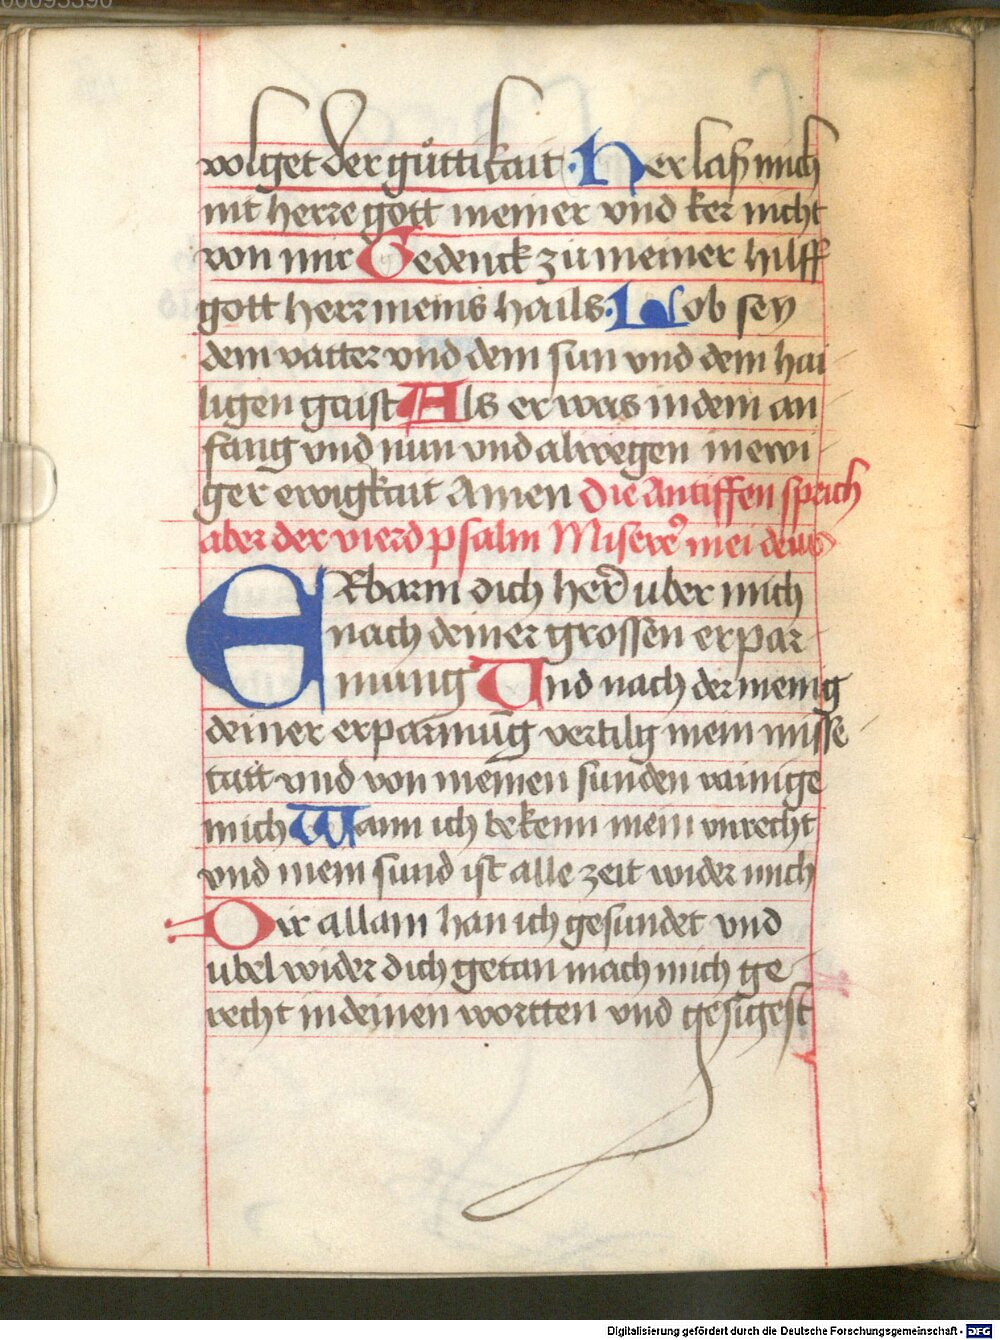 00095390
volget der güttikait · Her laß mich
nit herre gott meiner vnd ker nicht
von mir Gedenck zu meiner hilff
gott herr meins hails · Lob sey
dem vatter vnd dem sun vnd dem hai
ligen gaist Als er was in dem an
fang vnd nun vnd alwegen in ewi
ger ewigkait Amen Die Antiffen sprich
aber der vierd psalm Miserere mei deus
ERbarm dich her uber mich
nach deiner grossen erpar
mung Und nach der menig
deiner erparmung vertilg mein misse
tatt vnd von meinen sunden rainige
mich Wann ich bekenn mein vnrecht
vnd mein sund ist alle zeit wider mich
Dir allain han ich gesundet vnd
ubel wider dich getan mach mich ge
recht in deinen wortten vnd gesigest
Digitalisierung gefördert durch die Deutsche Forschungsgemeinschaft - DFG